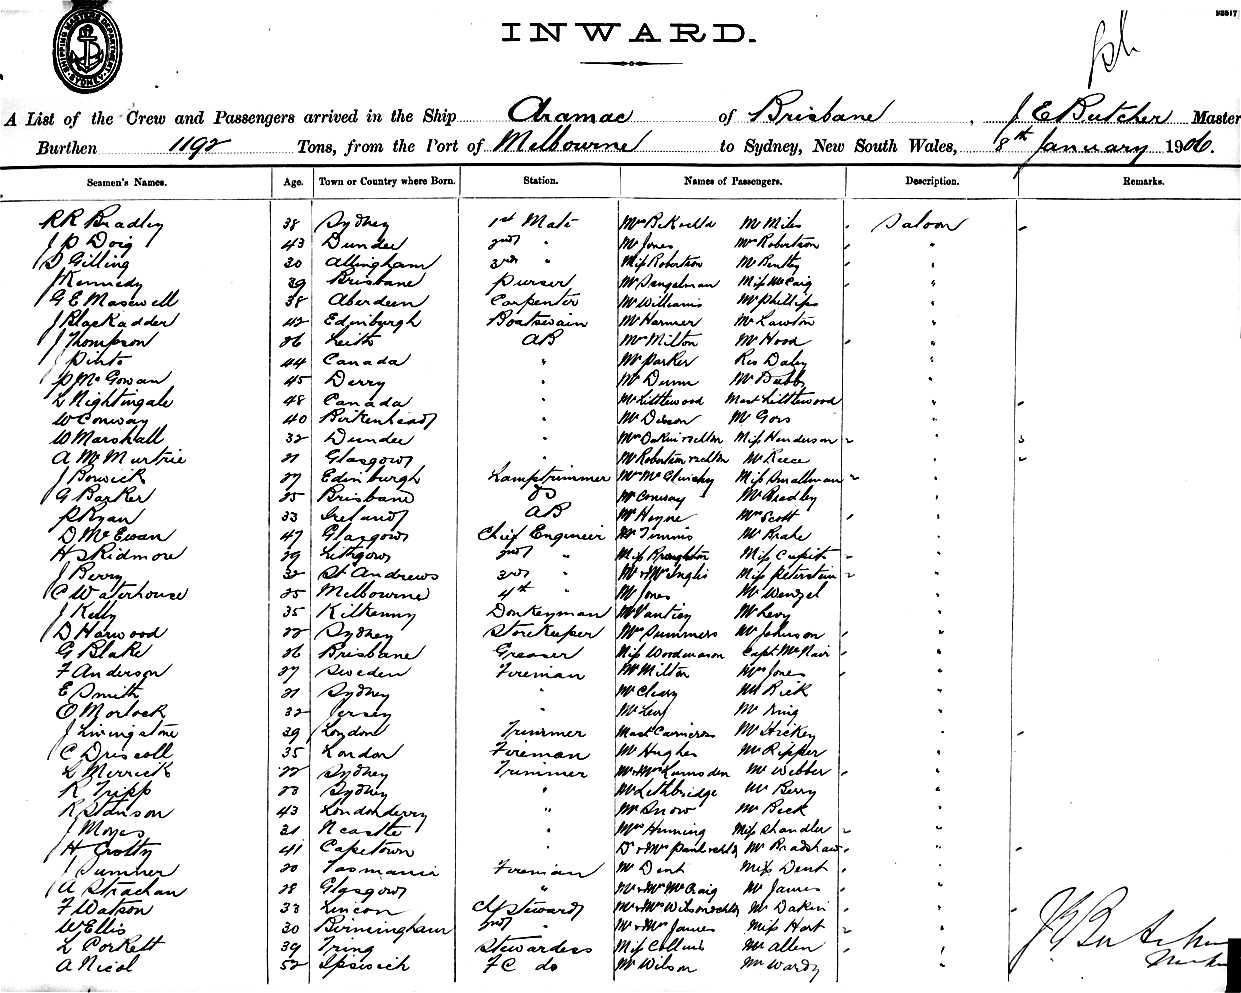 93517
SHIPPING MASTERS DEPARTMENT SYDNEY
INWARD.
A List of the Crew and Passengers arrived in the Ship Aramac of Brisbane, J E Butcher Master
Burthen 1192 Tons, from the Port of Melbourne to Sydney, New South Wales, 8th January 1906.
Seamen's Names. Age. Town or Country where Born. Station. Names of Passengers. Description. Remarks.
R R Bradley 38 Sydney 1st Mate Mr Miles Saloon
J P Doig 43 Dundee 2nd " Mr Jones Mr Robertson "
D Gilling 30 Allingham 3rd " Miss Robertson Mr Bentley "
J Kennedy 39 Brisbane Purser Miss McCaig "
G E Maxwell 38 Aberdeen Carpenter Mr Williams Mr Phillips "
J Blackadder 42 Edinburgh Boatswain Mr Harmer Mr Lawton "
J Thompson 26 Leith AB Mrs Milton Mr Hood "
J Pinto 44 Canada " Mr Parker Rev Daley "
P McGowan 45 Derry " Mr Dunn Mr Bubby "
L Nightingale 48 Canada " Mr Littlewood Mast Littlewood "
W Conway 40 Birkenhead " Mr Dixson Mr Gors "
W Marshall 32 Dundee " Miss Henderson "
A McMurtrie 21 Glasgow " Mr Reece "
J Borwick 27 Edinburgh Lamptrimmer Miss Smallman "
G Barker 25 Brisbane Do Mr Conway Mr Bradley "
P Ryan 33 Ireland AB Mr Hoyne Mr Scott "
D McEwan 47 Glasgow Chief Engineer Mr Timms Mr Brake "
H Skidmore 29 Lithgow 2nd " Miss Broughton Miss Cupitt "
J Berry 32 St Andrews 3rd " Mr & Mrs Inglis Miss Peterstein "
C Waterhouse 25 Melbourne 4th " Mr Jones Mr Wenzel "
J Kelly 35 Kilkenny Donkeyman Mr Levy "
D Harwood 22 Sydney Storekeeper Mrs Summers Mr Johnson "
G Blake 26 Brisbane Greaser Miss Woodmason Capt McNair "
F Anderson 27 Sweden Fireman Mr Milton Mrs Jones "
E Smith 21 Sydney " Mr Cleary Mr Rick "
E Morlock 32 Jersey " Mr Levy Mr King "
J Livingstone 29 London Trimmer Mast Cameron Mr Hickey "
C Driscoll 35 London Fireman Mr Hughes Mr Ripper "
L Merrick 22 Sydney Trimmer Mr & Mrs Lumsden Mr Webber "
R Tripp 23 Sydney " Mr Lethbridge Mr Berry "
R Stanson 43 Londonderry " Mr Snow Mr Beck "
J Moyes 21 Ncastle " Mrs Henning Miss Shandler "
H Crotty 41 Capetown " Mr Bradshaw "
J Sumner 20 Tasmania Fireman Mr Dent Miss Dent "
A Strachan 28 Glasgow " Mr & Mrs McCraig Mr James "
F Watson 33 Lincon Ch Steward Mr & Mrs Wilson Mr Dakin "
W Ellis 30 Birmingham 2nd " Mr & Mrs James Miss Hart "
L Corkett 39 Tring Stewardess Miss Collins Mr Allen "
A Nicol 52 Ipswich F C do Mr Wilson Mr Wardy "
J E Butcher
Master